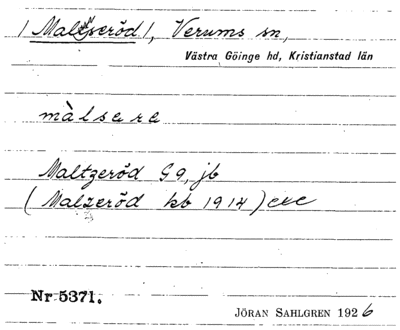 / Maltseröd /, Verums sn,
Västra Göinge hd, Kristianstad län
màlsere
Maltzeröd G9, jb
(Malzeröd kb 1914)
Nr 5371.
JÖRAN SAHLGREN 1926